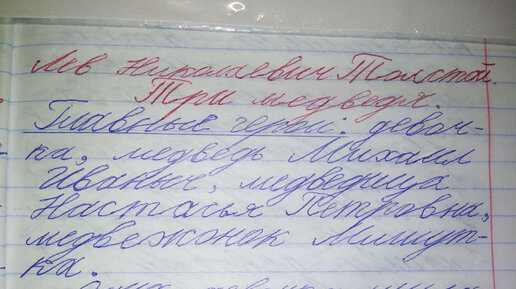 Лев Николаевич Толстой.
Три медведя.
Главные герои: девоч-
ка, медведь Михаил
Иваныч, медведица
Настасья Петровна,
медвежонок Мишут-
ка.